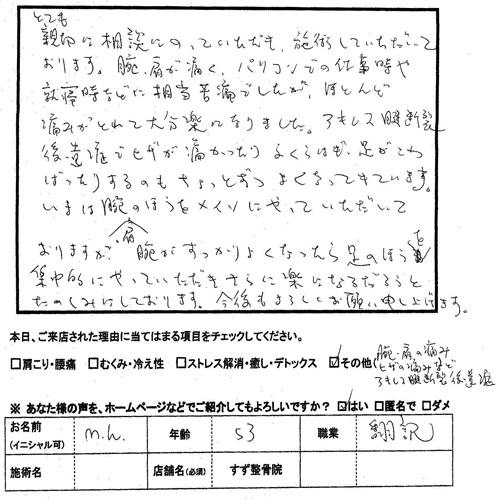 とても
親切に相談にのっていただき、施術していただいて
おります。腕、肩が痛く、パソコンでの仕事時や
就寝時などに相当苦痛でしたが、ほとんど
痛みがとれて大分楽になりました。アキレス腱断裂
後遺症でヒザが痛かったり ふくらはぎ、足がこわ
ばったりするのもちょっとずつ よくなってきています。
いまは腕、肩のほうをメインにやっていただいて
おりますが、腕がすっかりよくなったら足のほうを
集中的にやっていただきさらに楽になるだろうと
たのしみにしております。今後もよろしくお願い申し上げます。
本日、ご来店された理由に当てはまる項目をチェックしてください。
□肩こり・腰痛 □むくみ・冷え性 □ストレス解消・癒し・デトックス ☑その他(腕、肩の痛み
ヒザの痛みなど
アキレス腱断裂後遺症
※ あなた様の声を、ホームページなどでご紹介してもよろしいですか? ☑はい □匿名で □ダメ
お名前 (イニシャル可) m.h. 年齢 53 職業 翻訳
施術名 店舗名(必須) すず整骨院